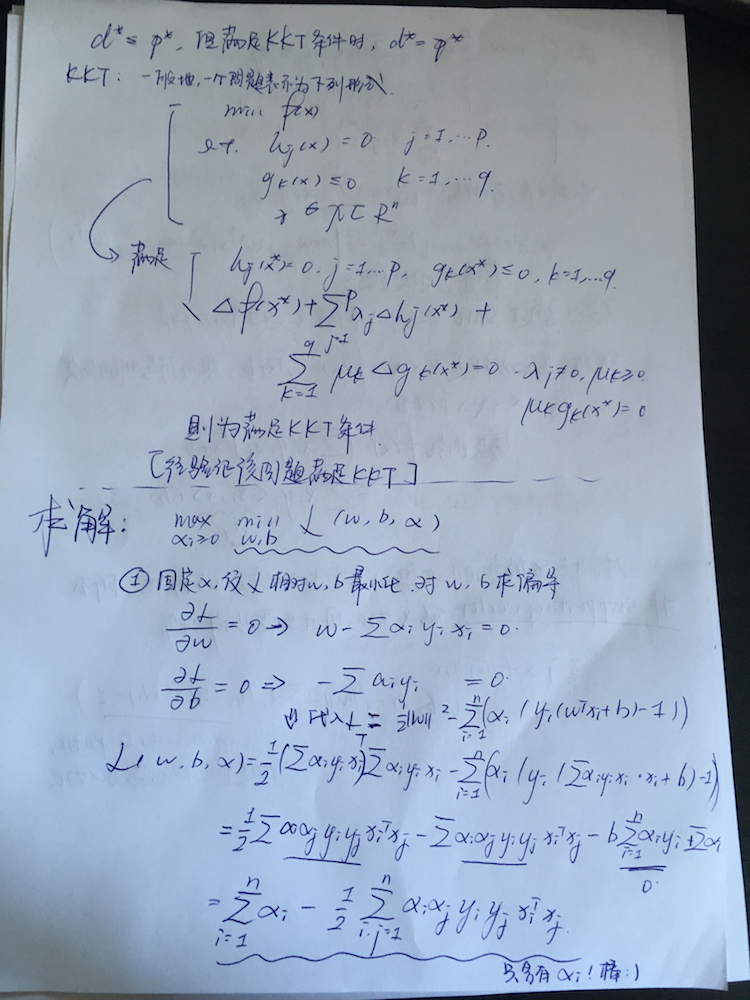 d* ≤ p*, 但满足KKT条件时, d* = p*
KKT: 一般地, 一个问题表示为下列形式.
min f(x)
s.t. hj(x) = 0. j = 1, … p.
gk(x) ≤ 0 k = 1, … q.
x ∈ X ⊂ Rⁿ
满足 hj(x*) = 0. j = 1, … p, gk(x*) ≤ 0, k = 1, … q.
Δf(x*) + Σ_{j=1}^{p} λj Δhj(x*) +
Σ_{k=1}^{q} μk Δgk(x*) = 0 . λj ≠ 0, μk ≥ 0.
μk gk(x*) = 0
则为满足KKT条件.
[经验证该问题满足KKT]
求解: max_{αi≥0} min_{w,b} L (w, b, α)
① 固定α, 使L相对w, b最小化. 对w, b求偏导
∂L/∂w = 0 ⇒ w - Σ αi yi xi = 0.
∂L/∂b = 0 ⇒ - Σ αi yi = 0.
⇓ 代入L = ½||w||² - Σ_{i=1}^{n} (αi (yi (wᵀxi + b) - 1))
L(w, b, α) = ½ (Σ αi yi xi)ᵀ Σ αi yi xi - Σ_{i=1}^{n} (αi (yi (Σ αi yi xi · xi + b) - 1))
= ½ Σ αi αj yi yj xiᵀ xj - Σ αi αj yi yj xiᵀ xj - b Σ_{i=1}^{n} αi yi + Σ αi
0.
= Σ_{i=1}^{n} αi - ½ Σ_{i,j=1}^{n} αi αj yi yj xiᵀ xj.
只含有αi! 棒:)